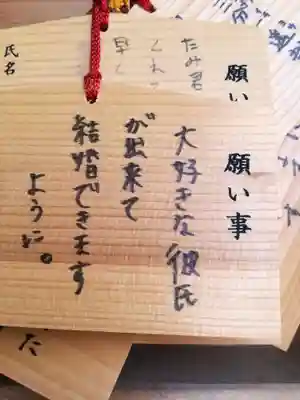 願い事
大好きな彼氏
が出来て
結婚できます
ように。
氏名
願い
早く
た